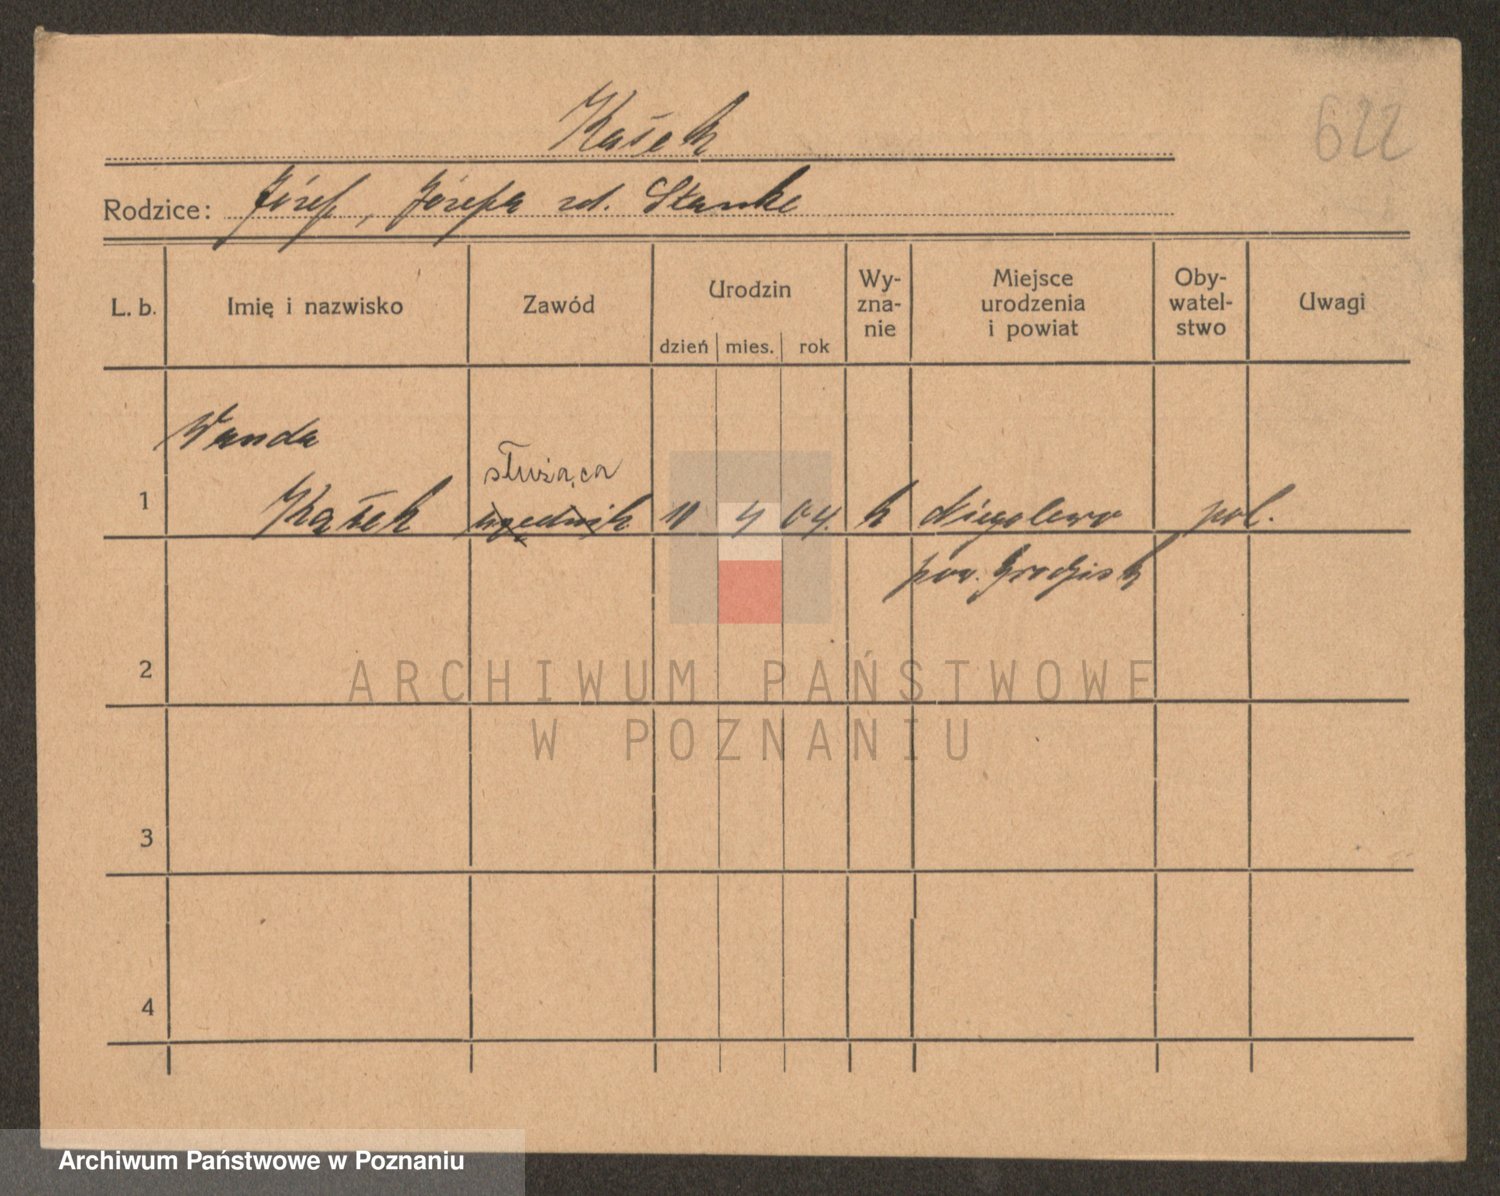 Kašek
622
Rodzice: Józef, Józefa zd. Stanke
L. b. Imię i nazwisko Zawód Urodzin dzień mies. rok Wy-zna-nie Miejsce urodzenia i powiat Oby-watel-stwo Uwagi
Wanda
służąca
1 Kašek urzędnik 11 4 04. k Niegolewo pol.
pow. Grodzisk
2
ARCHIWUM PAŃSTWOWE
W POZNANIU
3
4
Archiwum Państwowe w Poznaniu